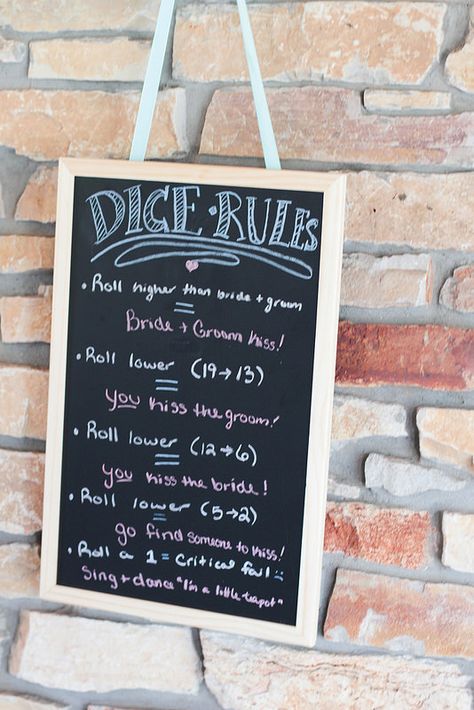 DICE • RULES
• Roll higher than bride + groom
=
Bride + Groom Kiss!
• Roll lower (19→13)
=
You kiss the groom!
• Roll lower (12→6)
=
You kiss the bride!
• Roll lower (5→2)
=
go find someone to kiss!
• Roll a 1 = Critical fail :(
Sing + dance "I'm a little teapot"